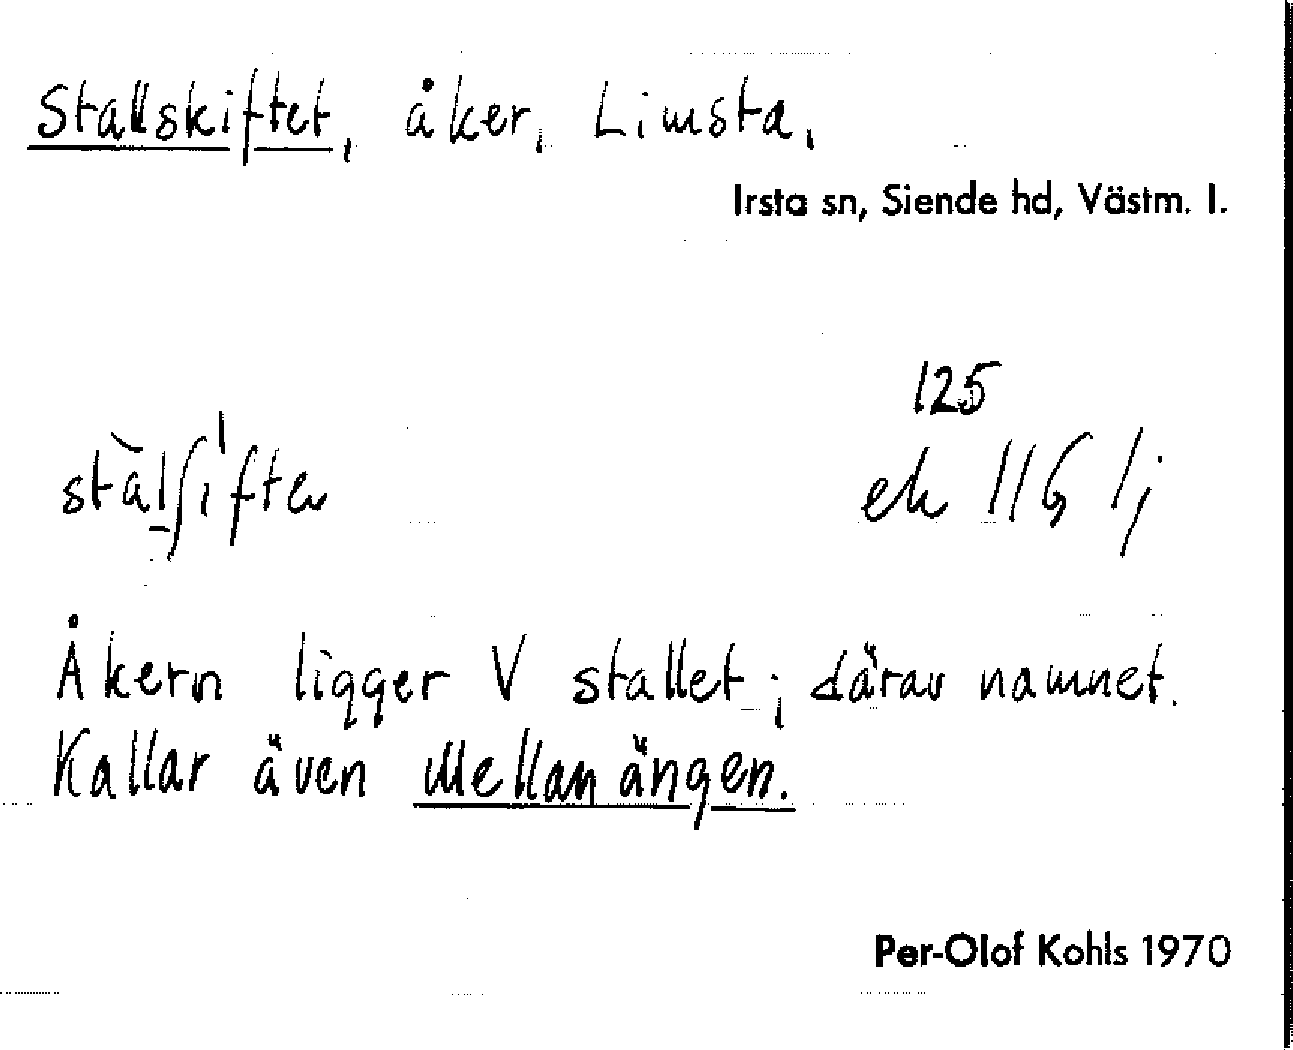 Stallskiftet, åker, Limsta,
Irsta sn, Siende hd, Västm. l.
125
ek 11G 1j
Åkern ligger V stallet; därav namnet.
Kallar även Mellanängen.
Per-Olof Kohls 1970